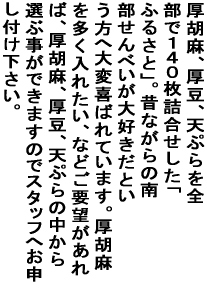 厚胡麻、厚豆、天ぷらを全
部で１４０枚詰合せした「
ふるさと」。昔ながらの南
部せんべいが大好きだとい
う方へ大変喜ばれています。厚胡麻
を多く入れたい、などご要望があれ
ば、厚胡麻、厚豆、天ぷらの中から
選ぶ事ができますのでスタッフへお申
し付け下さい。